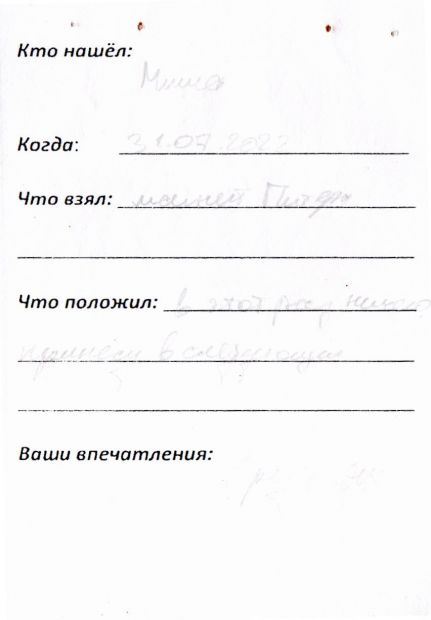 Кто нашёл:
Миша
Когда: 31.07.2022
Что взял: магнит Питера
Что положил: в этот раз ничего
принесу в следующий
Ваши впечатления: